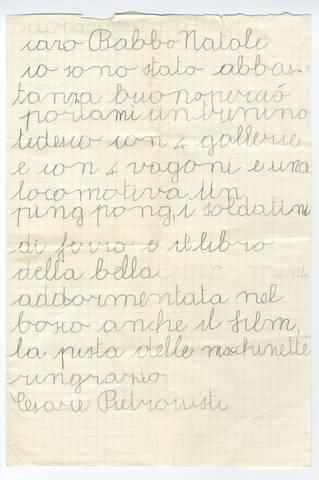 caro Babbo Natale
io sono stato abbas-
tanza buono perciò
portami un trenino
tedesco con 4 gallerie
e con 4 vagoni e una
locomotiva. Un
ping pong, i soldatini
di ferro e il libro
della bella
addormentata nel
bosco anche il film,
la pista delle macchinette
ringrazio
Cesare Pietroiusti